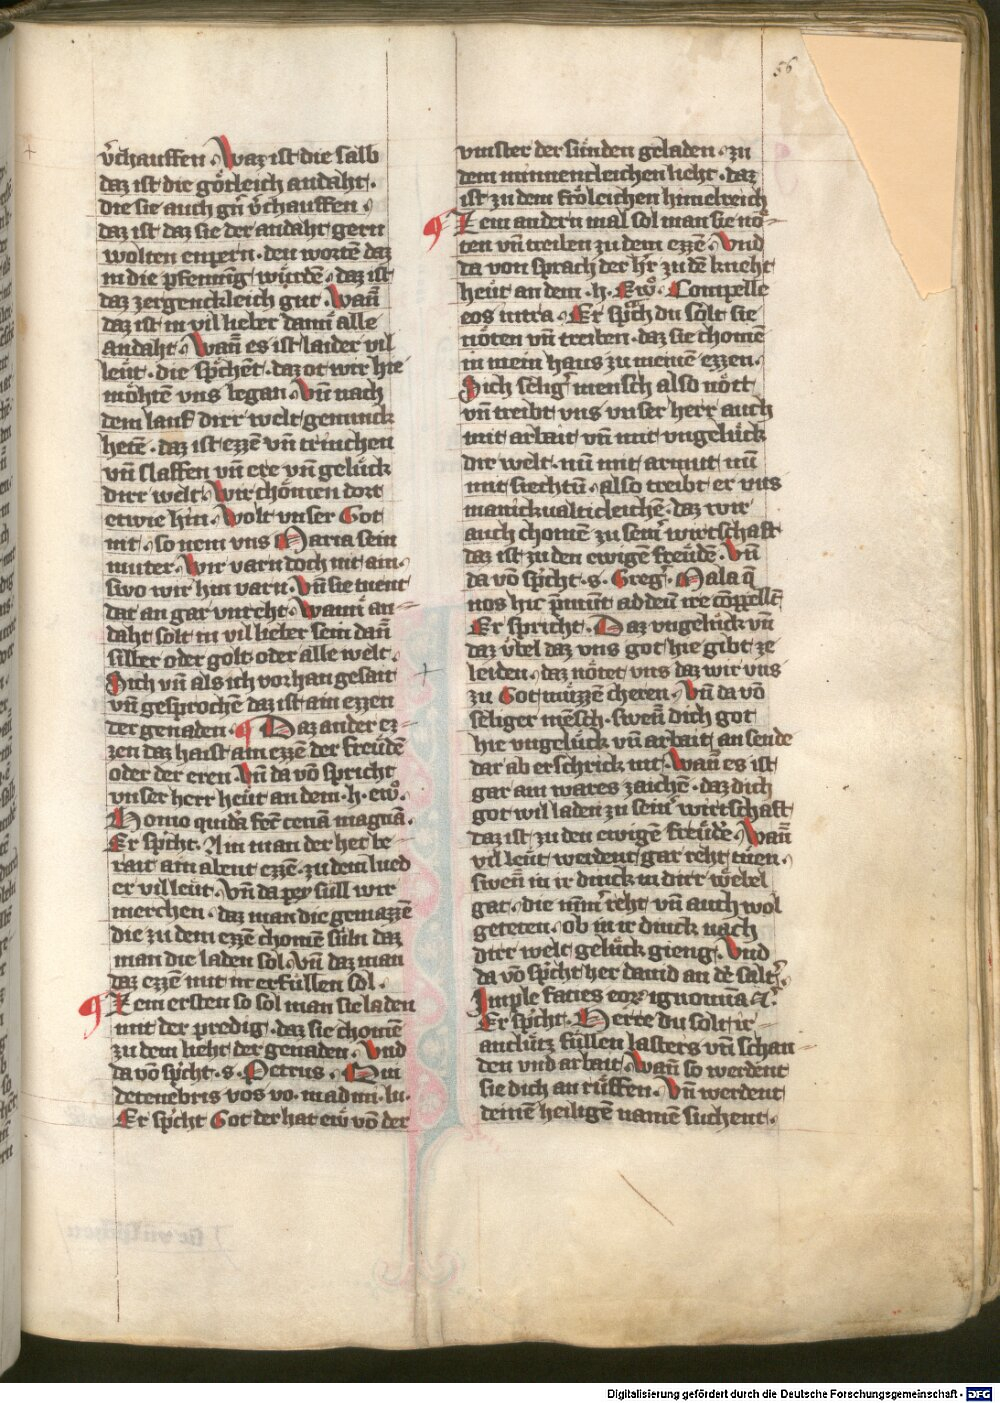 56
v̾chauffen · Waz ist die salb
daz ist die goͤtleich andaht ·
die sie auch gn̄ v̾chauffen ·
daz ist daz sie der andaht gern
wolten enpern · den wortē daz
in die pfenning wuͤrdē · daz ist
daz zergenckleich gut · Wan̄
daz ist in vil lieber dann̄ alle
andaht · Wan̄ es ist laider vil
leuͤt · die sp̾chēt · daz ot wir hie
moͤhtē vns began · Vn̄ nach
dem lauf dirr welt genunck
hetē · daz ist ezzē vn̄ trinchen
vn̄ slaffen vn̄ ere vn̄ geluͤck
dirr welt · Wir choͤmen dort
etwie hin · Wolt vnser Got
nit · so nem vns Maria sein
muter · Wir varn doch nit ain ·
swo wir hin varn · Vn̄ sie tuent
dar an gar vnreht · Wann̄ an-
daht solt in vil lieber sein dan̄
silber oder golt · oder alle welt ·
Sich vn̄ als ich vor han gesait
vn̄ gesprochē daz ist ain ezzen
der genaden · ¶ Daz ander ez-
zen daz haist ain ezzē der freuͤdē
oder der eren · Vn̄ da vō spricht
vnser herr heuͤt an dem · h · ewͦ ·
Homo quidā fec̄ cenā magnā ·
Er sp̾cht · Ain man der het be
rait ain abent ezzē · zu dem lued
er vil leuͤt · Vn̄ da pey suͤll wir
merchen · daz man die gemazzē
die zu dem ezzē chomē suͤln daz
man die laden sol · Vn̄ daz man
daz ezzē mit in erfuͤllen sol ·
¶ Zem ersten so sol man sie laden
mit der predig · daz sie chomē
zu dem lieht der genaden · Vnd
da vō sp̾cht · s · Petrus · Qui
de tenebris vos vo · in admi · lu ·
Er sp̾cht Got der hat ew̄ vō der
vinster der suͤnden geladen · zu
dem minnencleichen lieht · daz
ist zu dem froͤleichen himelreich
¶ Zem andern mal sol man sie noͤ-
ten vn̄ treiben zu dem ezzē · Vnd
da von sprach der h̾r zu dē kneht
heuͤt an dem · h · Ewͦ · Compelle
eos intra · Er sp̾ch du solt sie
noͤten vn̄ treiben · daz sie chomē
in mein haus zu meinē ezzen ·
Sich selig̾ mensch also noͤtt
vn̄ treibt vns vnser herr auch
mit arbait vn̄ mit vngeluͤck
dirr welt · nu mit armut · nu
mit siechtū · also treibt er vns
manickualticleichē · daz wir
auch chomē zu sein̾ wirtschaft
daz ist zu den ewigē freuͤdē · Vn̄
da vō sp̾cht · s · Greg̾ · Mala q̄
nos hic p̾munt ad deū ire cōpellēt
Er spricht · Daz vngeluck vn̄
daz vbel daz vns got hie gibt ze
leiden · daz noͤtet vns daz wir vns
zu Got muͤzzē cheren · Vn̄ da vō
seliger mēsch · swen̄ dich got
hie vngeluͤck vn̄ arbait an sende
dar ab erschrick nit · Wan̄ es ist
gar ain wares zaichē · daz dich
got wil laden zu sein̾ wirtschaft
daz ist zu den ewigē freuͤdē · Wan̄
vil leuͤt werdent gar reht tuͤen ·
swen̄ in ir dinck in dirr webel
gat · die nim̄ reht vn̄ auch wol
geteten · ob in ir dinck nach
dirr welt geluͤck gieng · Vnd
da vō sp̾cht her dauid an dē salt̾
Imple facies eoꝝ ignominia ꝛc̾
Er sp̾cht · Herre du solt ir
antluͤtz fuͤllen lasters vn̄ schan
den vnd arbait · Wan̄ so werdent
sie dich an ruͤffen · Vn̄ werdent
deinē heiligē namē suchent ·
Digitalisierung gefördert durch die Deutsche Forschungsgemeinschaft - DFG